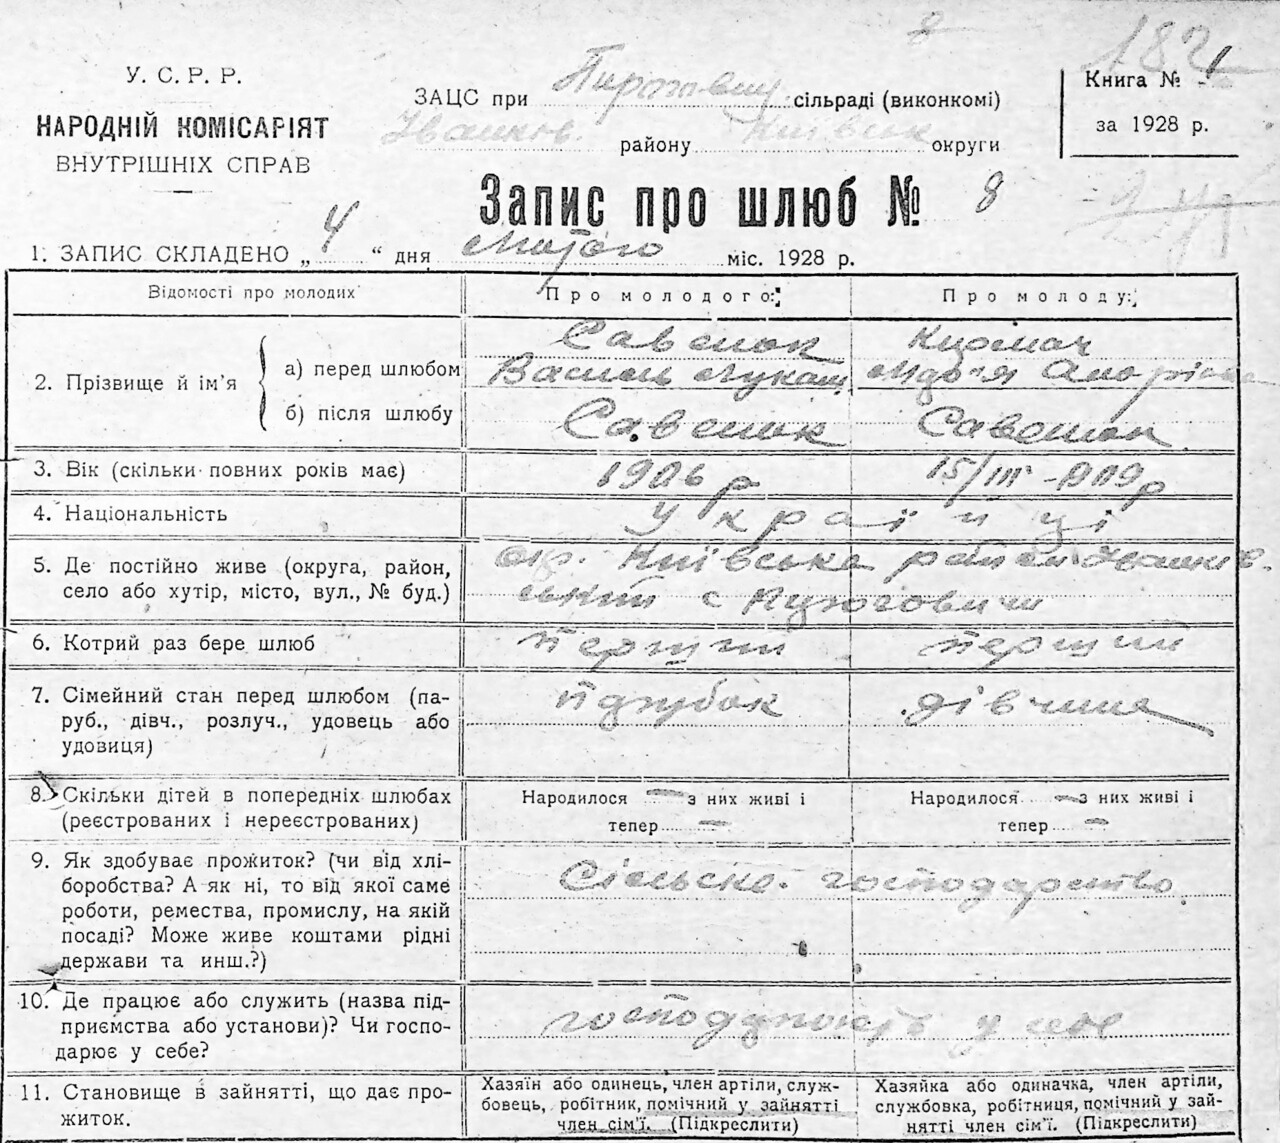 У. С. Р. Р.
НАРОДНІЙ КОМІСАРІЯТ
ВНУТРІШНІХ СПРАВ
8
182
ЗАЦС при сільраді (виконкомі)
Іванков. району Київськ округи
Книга № 1
за 1928 р.
Запис про шлюб № 8
1. ЗАПИС СКЛАДЕНО „ 4 “ дня Лютого міс. 1928 р.
Відомості про молодих
Про молодого:
Про молоду:
2. Прізвище й ім'я
а) перед шлюбом
Савенок
Василь Лукаш
Мдо'я
б) після шлюбу
Савенок
Савенок
3. Вік (скільки повних років має)
1906 р
15/III-1909р
4. Національність
Українці
5. Де постійно живе (округа, район, село або хутір, місто, вул., № буд.)
окр. Київська район Іванків-
ський с
6. Котрий раз бере шлюб
перший
перший
7. Сімейний стан перед шлюбом (па-
руб., дівч., розлуч., удовець або
удовиця)
парубок
дівчина
8. Скільки дітей в попередніх шлюбах
(реєстрованих і нереєстрованих)
Народилося — з них живі і
тепер —
Народилося — з них живі і
тепер —
9. Як здобуває прожиток? (чи від хлі-
боробства? А як ні, то від якої саме
роботи, ремества, промислу, на якій
посаді? Може живе коштами рідні
держави та инш.?)
Сільське господарство
10. Де працює або служить (назва під-
приємства або установи)? Чи госпо-
дарює у себе?
господарюють у себе
11. Становище в зайнятті, що дає про-
житок.
Хазяїн або одинець, член артіли, служ-
бовець, робітник, помічний у зайнятті
член сім'ї. (Підкреслити)
Хазяйка або одиначка, член артіли,
службовка, робітниця, помічний у зай-
нятті член сім'ї. (Підкреслити)